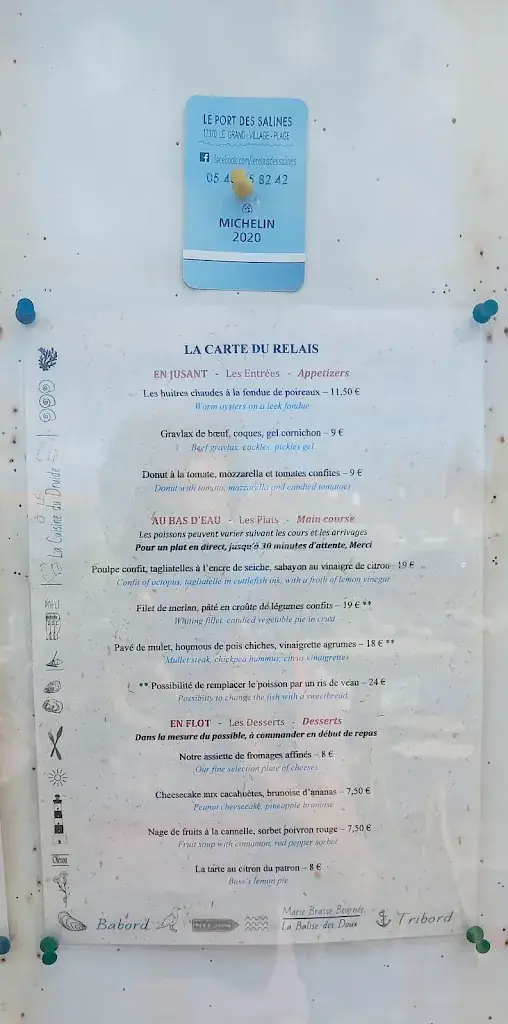 LE PORT DES SALINES
17370 LE GRAND-VILLAGE-PLAGE
facebook.com/lerelaisdessalines
05 4 5 82 42
MICHELIN
2020
LA CARTE DU RELAIS
EN JUSANT - Les Entrées - Appetizers
Les huitres chaudes à la fondue de poireaux – 11,50 €
Warm oysters on a leek fondue
Gravlax de bœuf, coques, gel cornichon – 9 €
Beef gravlax, cockles, pickles gel
Donut à la tomate, mozzarella et tomates confites – 9 €
Donut with tomato, mozzarella and candied tomatoes
AU BAS D'EAU - Les Plats - Main course
Les poissons peuvent varier suivant les cours et les arrivages
Pour un plat en direct, jusqu'à 30 minutes d'attente, Merci
Poulpe confit, tagliatelles à l'encre de seiche, sabayon au vinaigre de citron– 19 €
Confit of octopus, tagliatelle in cuttlefish ink, with a froth of lemon vinegar
Filet de merlan, pâté en croûte de légumes confits – 19 € **
Whiting fillet, candied vegetable pie in crust
Pavé de mulet, houmous de pois chiches, vinaigrette agrumes – 18 € **
Mullet steak, chickpea hummus, citrus vinaigrettes
** Possibilité de remplacer le poisson par un ris de veau – 24 €
Possibilty to change the fish with a sweetbread
EN FLOT - Les Desserts - Desserts
Dans la mesure du possible, à commander en début de repas
Notre assiette de fromages affinés – 8 €
Our fine selection plate of cheeses
Cheesecake aux cacahuètes, brunoise d'ananas – 7,50 €
Peanut cheesecake, pineapple brunoise
Nage de fruits à la cannelle, sorbet poivron rouge – 7,50 €
Fruit soup with cinnamon, red pepper sorbet
La tarte au citron du patron – 8 €
Boss's lemon pie
La Cuisine du Druide
Oléron
Babord
La Balise des Doux
Tribord